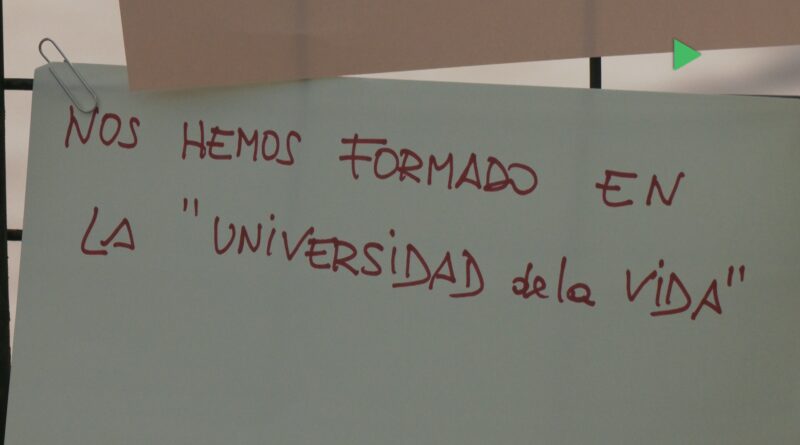 NOS HEMOS FORMADO EN
LA "UNiVERSiDAD de la ViDA"